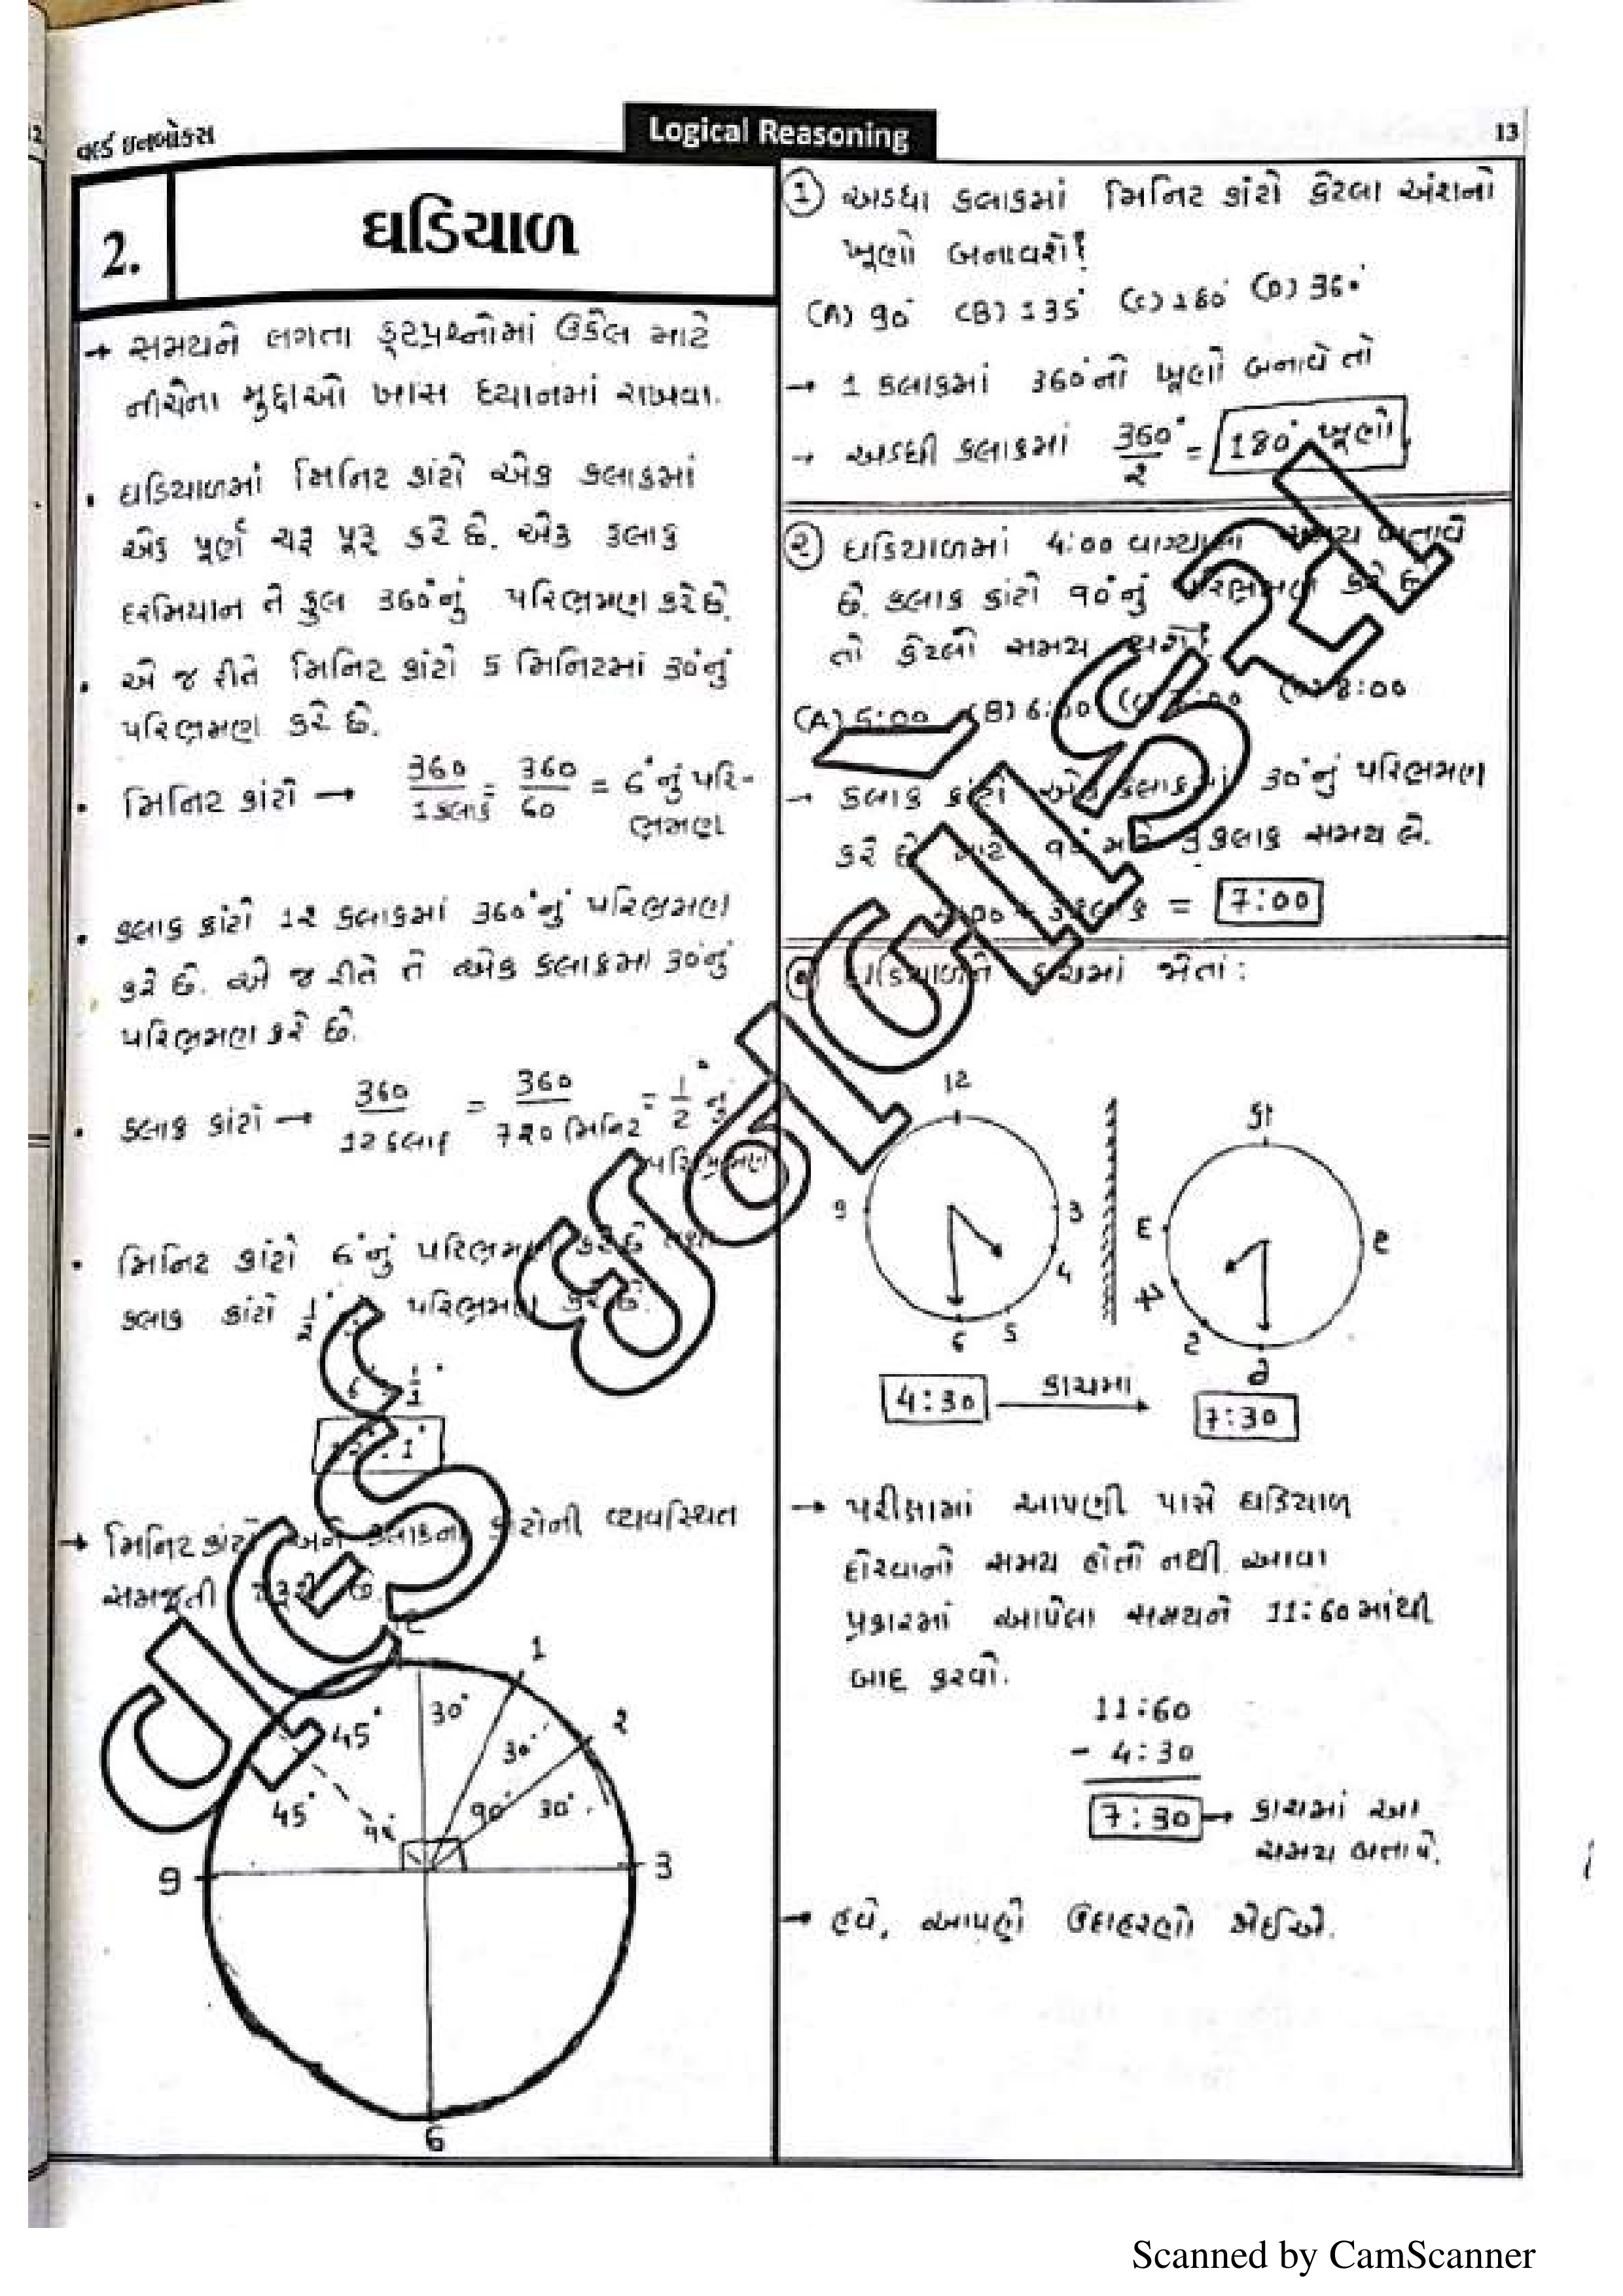 વર્લ્ડ ઇનબોક્સ
Logical Reasoning
13
2.
ઘડિયાળ
→ સમયને લગતા કૂટપ્રશ્નોમાં ઉકેલ માટે
નીચેના મુદ્દાઓ ખાસ ધ્યાનમાં રાખવા.
• ઘડિયાળમાં મિનિટ કાંટો એક કલાકમાં
એક પૂર્ણ ચક્ર પૂરૂ કરે છે. એક કલાક
દરમિયાન તે કુલ 360°નું પરિભ્રમણ કરે છે.
• એ જ રીતે મિનિટ કાંટો 5 મિનિટમાં 30°નું
પરિભ્રમણ કરે છે.
• મિનિટ કાંટો → 360/1કલાક = 360/60 = 6°નું પરિ-
ભ્રમણ
• કલાક કાંટો 12 કલાકમાં 360°નું પરિભ્રમણ
કરે છે. એ જ રીતે તે એક કલાકમાં 30°નું
પરિભ્રમણ કરે છે.
• કલાક કાંટો → 360/12 કલાક = 360/720 મિનિટ = 1/2° નું
પરિભ્રમણ
• મિનિટ કાંટો 6°નું પરિભ્રમણ કરે છે
કલાક કાંટો 1/2° પરિભ્રમણ કરે છે.
6 1/2°
1°
→ મિનિટ કાંટો અને કલાકના કાંટોની વ્યવસ્થિત
સમજૂતી
1
2
3
6
9
30°
30°
30°
90°
45°
45°
① અડધા કલાકમાં મિનિટ કાંટો કેટલા અંશનો
ખૂણો બનાવશે?
(A) 90° (B) 135° (C) 180° (D) 360°
→ 1 કલાકમાં 360°નો ખૂણો બનાવે તો
→ અડધી કલાકમાં 360°/2 = 180° ખૂણો
② ઘડિયાળમાં 4:00 વાગ્યાનો સમય બતાવે
છે. કલાક કાંટો 90°નું પરિભ્રમણ કરે છે
તો કેટલો સમય થશે?
(A) 5:00 (B) 6:00 (C) 7:00 (D) 8:00
→ કલાક કાંટો એક કલાકમાં 30°નું પરિભ્રમણ
કરે છે માટે 90° માટે 3 કલાક સમય લે.
4:00 + 3 કલાક = 7:00
ઘડિયાળને કાચમાં જોતાં:
12
9
3
4
5
6
4:30 કાચમાં → 7:30
→ પરીક્ષામાં આપણી પાસે ઘડિયાળ
દોરવાનો સમય હોતો નથી. આવા
પ્રકારમાં આપેલા સમયને 11:60માંથી
બાદ કરવો.
11:60
- 4:30
7:30 → કાચમાં આ
સમય બતાવે.
→ હવે, આપણે ઉદાહરણો જોઈએ.
Scanned by CamScanner